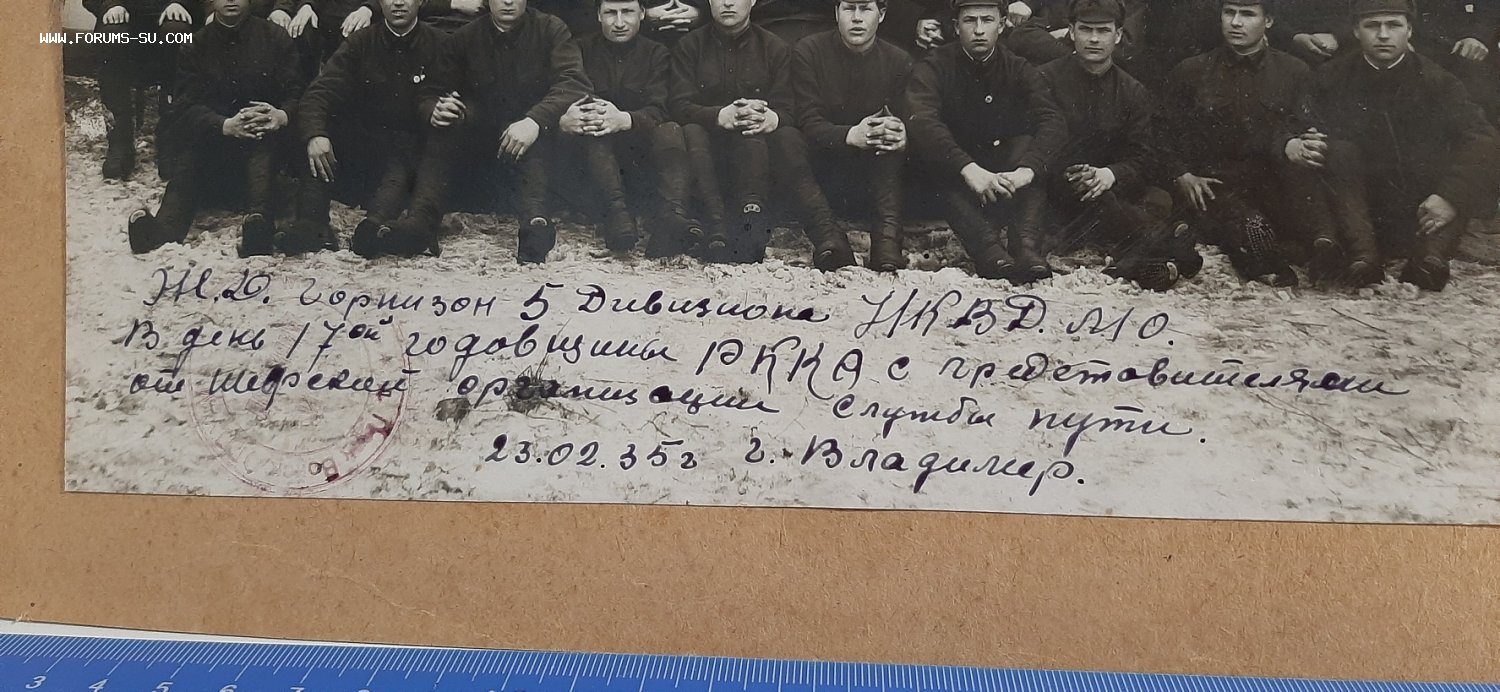 WWW.FORUMS-SU.COM
Ж.Д. горнизон 5 Дивизиона НКВД. М/О.
В день 17ой годовщины РККА с представителями
от Шефской организации службы пути.
23.02.35г г. Владимир.
3 4 5 6 7